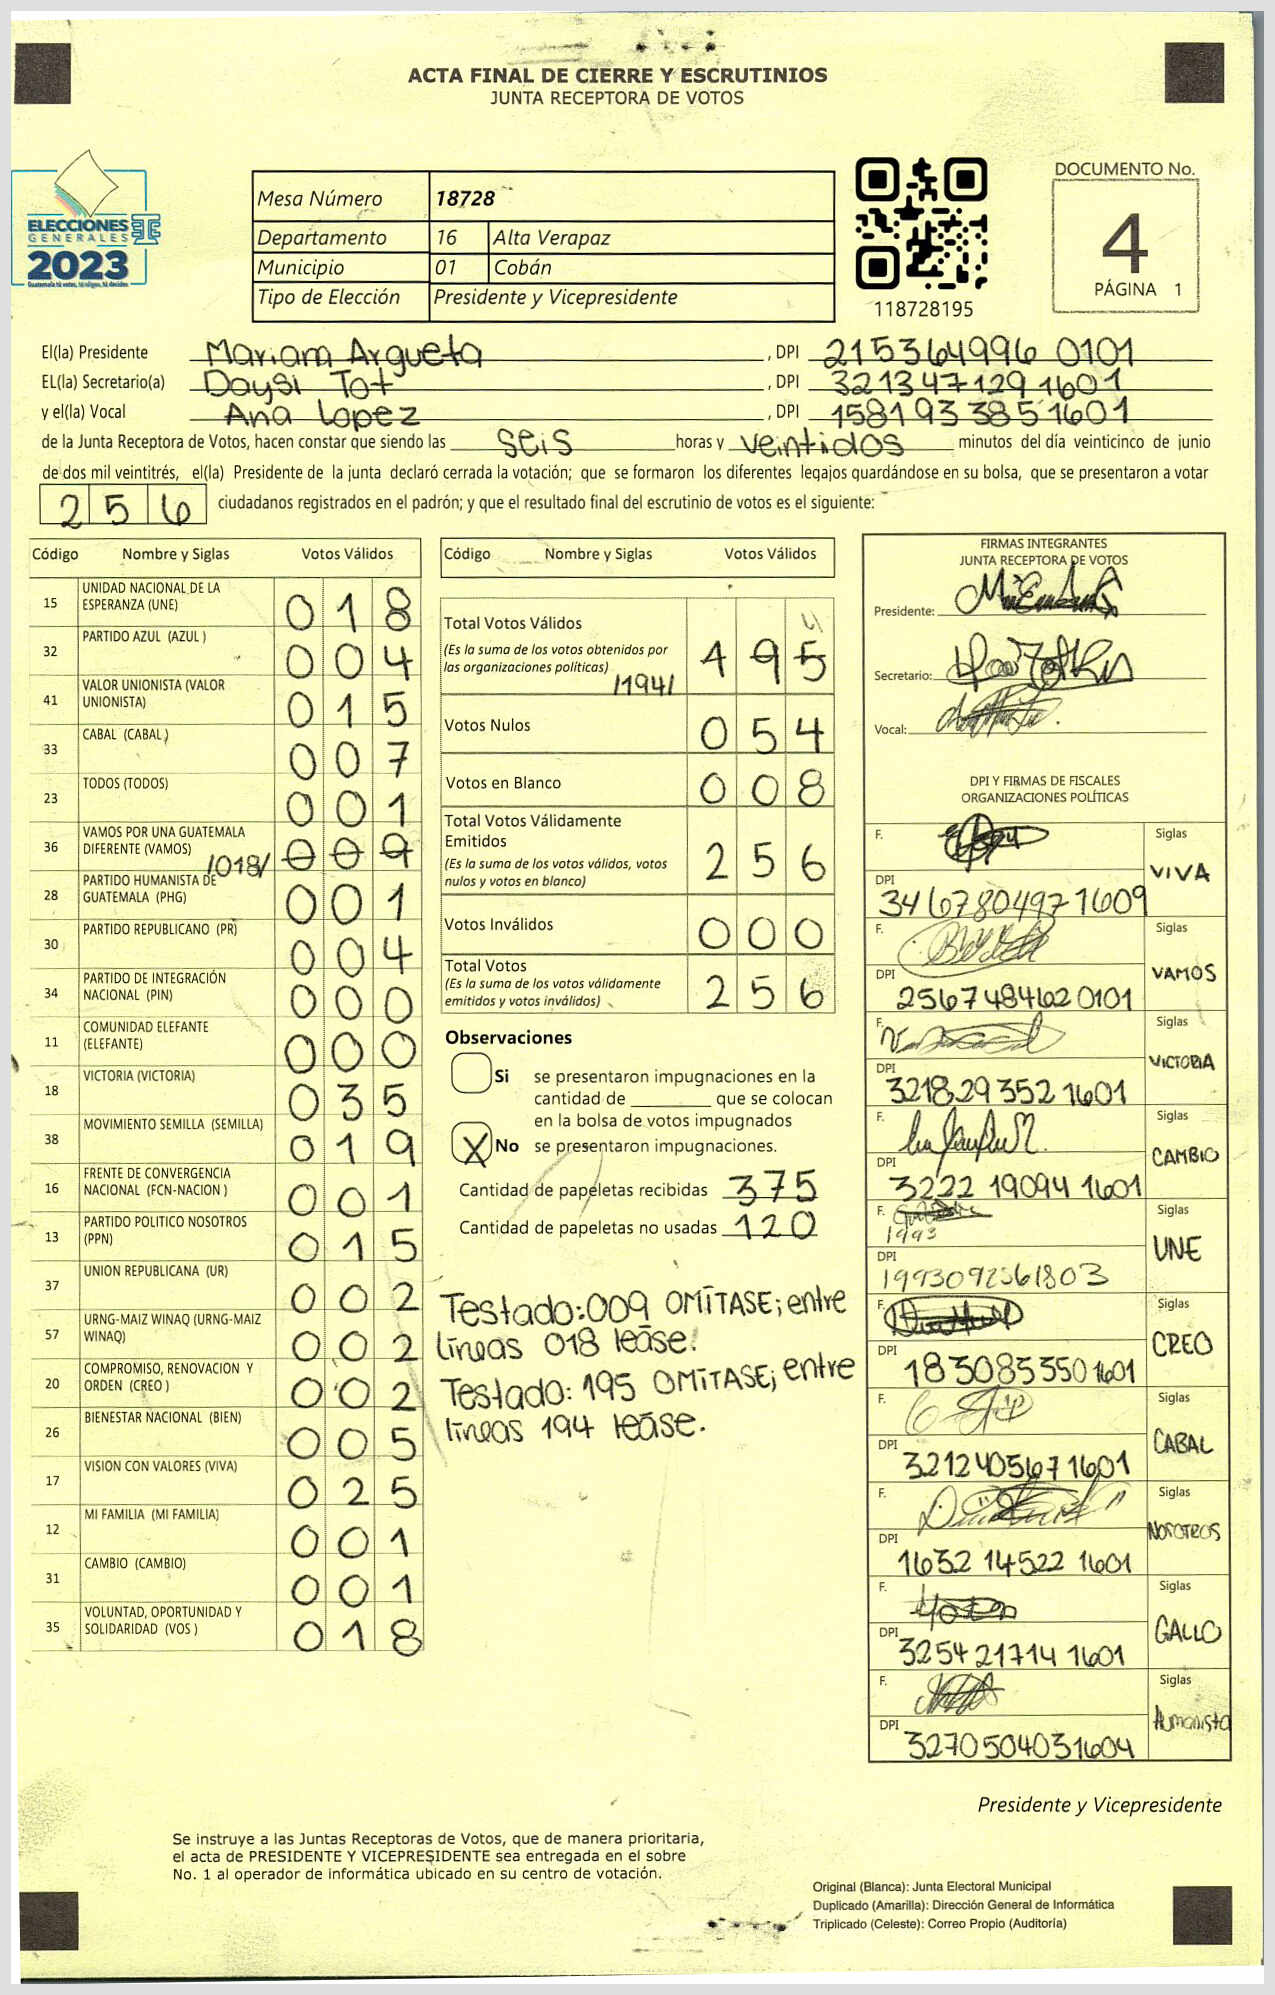 ACTA FINAL DE CIERRE Y ESCRUTINIOS
JUNTA RECEPTORA DE VOTOS
ELECCIONES
GENERALES
2023
Guatemala tú votas, tú eliges, tú decides
Mesa Número 18728
Departamento 16 Alta Verapaz
Municipio 01 Cobán
Tipo de Elección Presidente y Vicepresidente
118728195
DOCUMENTO No.
4
PÁGINA 1
El(la) Presidente Mariam Argueta, DPI 215364996 0101
EL(la) Secretario(a) Daysi Tot, DPI 321347129 1601
y el(la) Vocal Ana Lopez, DPI 158193385 1601
de la Junta Receptora de Votos, hacen constar que siendo las seis horas y veintidos minutos del día veinticinco de junio
de dos mil veintitrés, el(la) Presidente de la junta declaró cerrada la votación; que se formaron los diferentes legajos quardándose en su bolsa, que se presentaron a votar
256 ciudadanos registrados en el padrón; y que el resultado final del escrutinio de votos es el siguiente:
Código Nombre y Siglas Votos Válidos
15 UNIDAD NACIONAL DE LA ESPERANZA (UNE) 018
32 PARTIDO AZUL (AZUL ) 004
41 VALOR UNIONISTA (VALOR UNIONISTA) 015
33 CABAL (CABAL ) 007
23 TODOS (TODOS) 001
36 VAMOS POR UNA GUATEMALA DIFERENTE (VAMOS) /018/ 009
28 PARTIDO HUMANISTA DE GUATEMALA (PHG) 001
30 PARTIDO REPUBLICANO (PR) 004
34 PARTIDO DE INTEGRACIÓN NACIONAL (PIN) 000
11 COMUNIDAD ELEFANTE (ELEFANTE) 000
18 VICTORIA (VICTORIA) 035
38 MOVIMIENTO SEMILLA (SEMILLA) 019
16 FRENTE DE CONVERGENCIA NACIONAL (FCN-NACION ) 001
13 PARTIDO POLITICO NOSOTROS (PPN) 015
37 UNION REPUBLICANA (UR) 002
57 URNG-MAIZ WINAQ (URNG-MAIZ WINAQ) 002
20 COMPROMISO, RENOVACION Y ORDEN (CREO ) 002
26 BIENESTAR NACIONAL (BIEN) 005
17 VISION CON VALORES (VIVA) 025
12 MI FAMILIA (MI FAMILIA) 001
31 CAMBIO (CAMBIO) 001
35 VOLUNTAD, OPORTUNIDAD Y SOLIDARIDAD (VOS ) 018
Código Nombre y Siglas Votos Válidos
Total Votos Válidos 195
(Es la suma de los votos obtenidos por
las organizaciones políticas) /194/
Votos Nulos 054
Votos en Blanco 008
Total Votos Válidamente
Emitidos 256
(Es la suma de los votos válidos, votos
nulos y votos en blanco)
Votos Inválidos 000
Total Votos
(Es la suma de los votos válidamente
emitidos y votos inválidos) 256
Observaciones
Si se presentaron impugnaciones en la
cantidad de ________ que se colocan
en la bolsa de votos impugnados
X No se presentaron impugnaciones.
Cantidad de papeletas recibidas 375
Cantidad de papeletas no usadas 120
Testado: 009 OMÍTASE; entre
líneas 018 leáse.
Testado: 195 OMÍTASE; entre
líneas 194 leáse.
FIRMAS INTEGRANTES
JUNTA RECEPTORA DE VOTOS
Presidente:
Secretario:
Vocal:
DPI Y FIRMAS DE FISCALES
ORGANIZACIONES POLÍTICAS
F. Siglas VIVA
DPI 346780497 1609
F. Siglas VAMOS
DPI 256748462 0101
F. Siglas VICTORIA
DPI 321829352 1601
F. Siglas CAMBIO
DPI 3222 19094 1601
F. 1993 Siglas UNE
DPI 1993092561803
F. Siglas CREO
DPI 183083350 1601
F. Siglas CABAL
DPI 321240567 1601
F. Siglas NOSOTROS
DPI 1632 14522 1601
F. Siglas GALLO
DPI 3254 21714 1601
F. Siglas Humanista
DPI 3270504031604
Presidente y Vicepresidente
Se instruye a las Juntas Receptoras de Votos, que de manera prioritaria,
el acta de PRESIDENTE Y VICEPRESIDENTE sea entregada en el sobre
No. 1 al operador de informática ubicado en su centro de votación.
Original (Blanca): Junta Electoral Municipal
Duplicado (Amarilla): Dirección General de Informática
Triplicado (Celeste): Correo Propio (Auditoría)